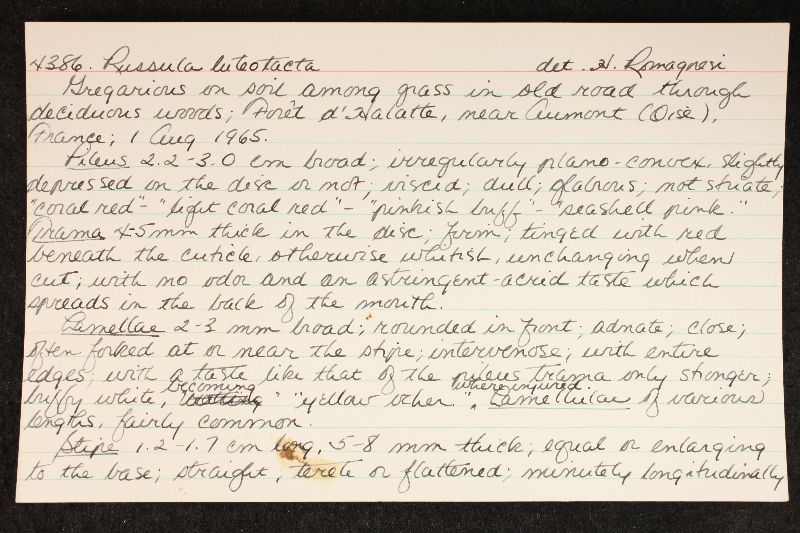 4386. Russula luteotacta det. H. Romagnesi
Gregarious on soil among grass in old road through
deciduous woods; Forêt d'Halatte, near Aumont (Oise),
France; 1 Aug 1965.
Pileus 2.2-3.0 cm broad; irregularly plano-convex, slightly
depressed on the disc or not; viscid; dull; glabrous; not striate;
"coral red"-"light coral red"-"pinkish buff"-"seashell pink."
Trama 4-5 mm thick in the disc; firm; tinged with red
beneath the cuticle, otherwise whitish, unchanging when
cut; with no odor and an astringent-acrid taste which
spreads in the back of the mouth.
Lamellae 2-3 mm broad; rounded in front; adnate; close;
often forked at or near the stipe; intervenose; with entire
edges; with a taste like that of the pileus trama only stronger;
buffy white, becoming "yellow ocher" where injured. Lamellulae of various
lengths, fairly common.
Stipe 1.2-1.7 cm long, 5-8 mm thick; equal or enlarging
to the base; straight, terete or flattened; minutely longitudinally